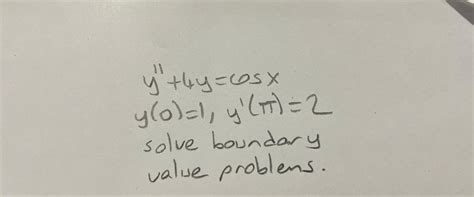 y''+4y=cosx
y(0)=1, y'(π)=2
solve boundary
value problems.